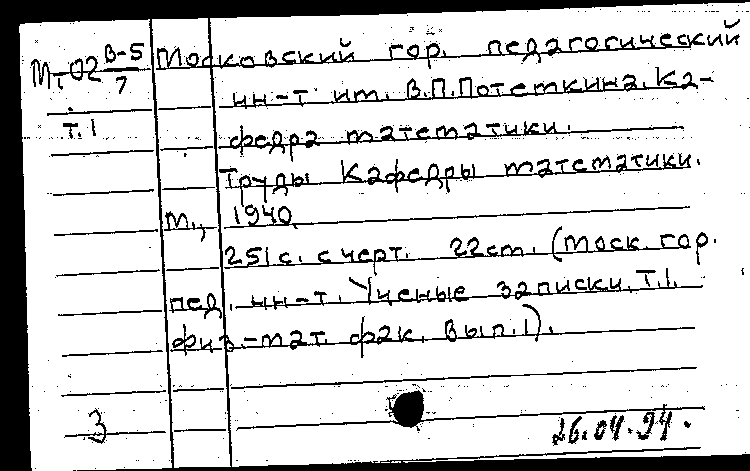 М-02 В-5/7 Московский гор. педагогический
ин-т им. В.П.Потемкина. Ка-
т.1 федра математики.
Труды Кафедры математики.
М., 1940.
251с. с черт. 22см. (Моск. гор.
пед. ин-т. Ученые записки. Т.1.
физ.-мат. фак. Вып.1).
3 26.04.94.